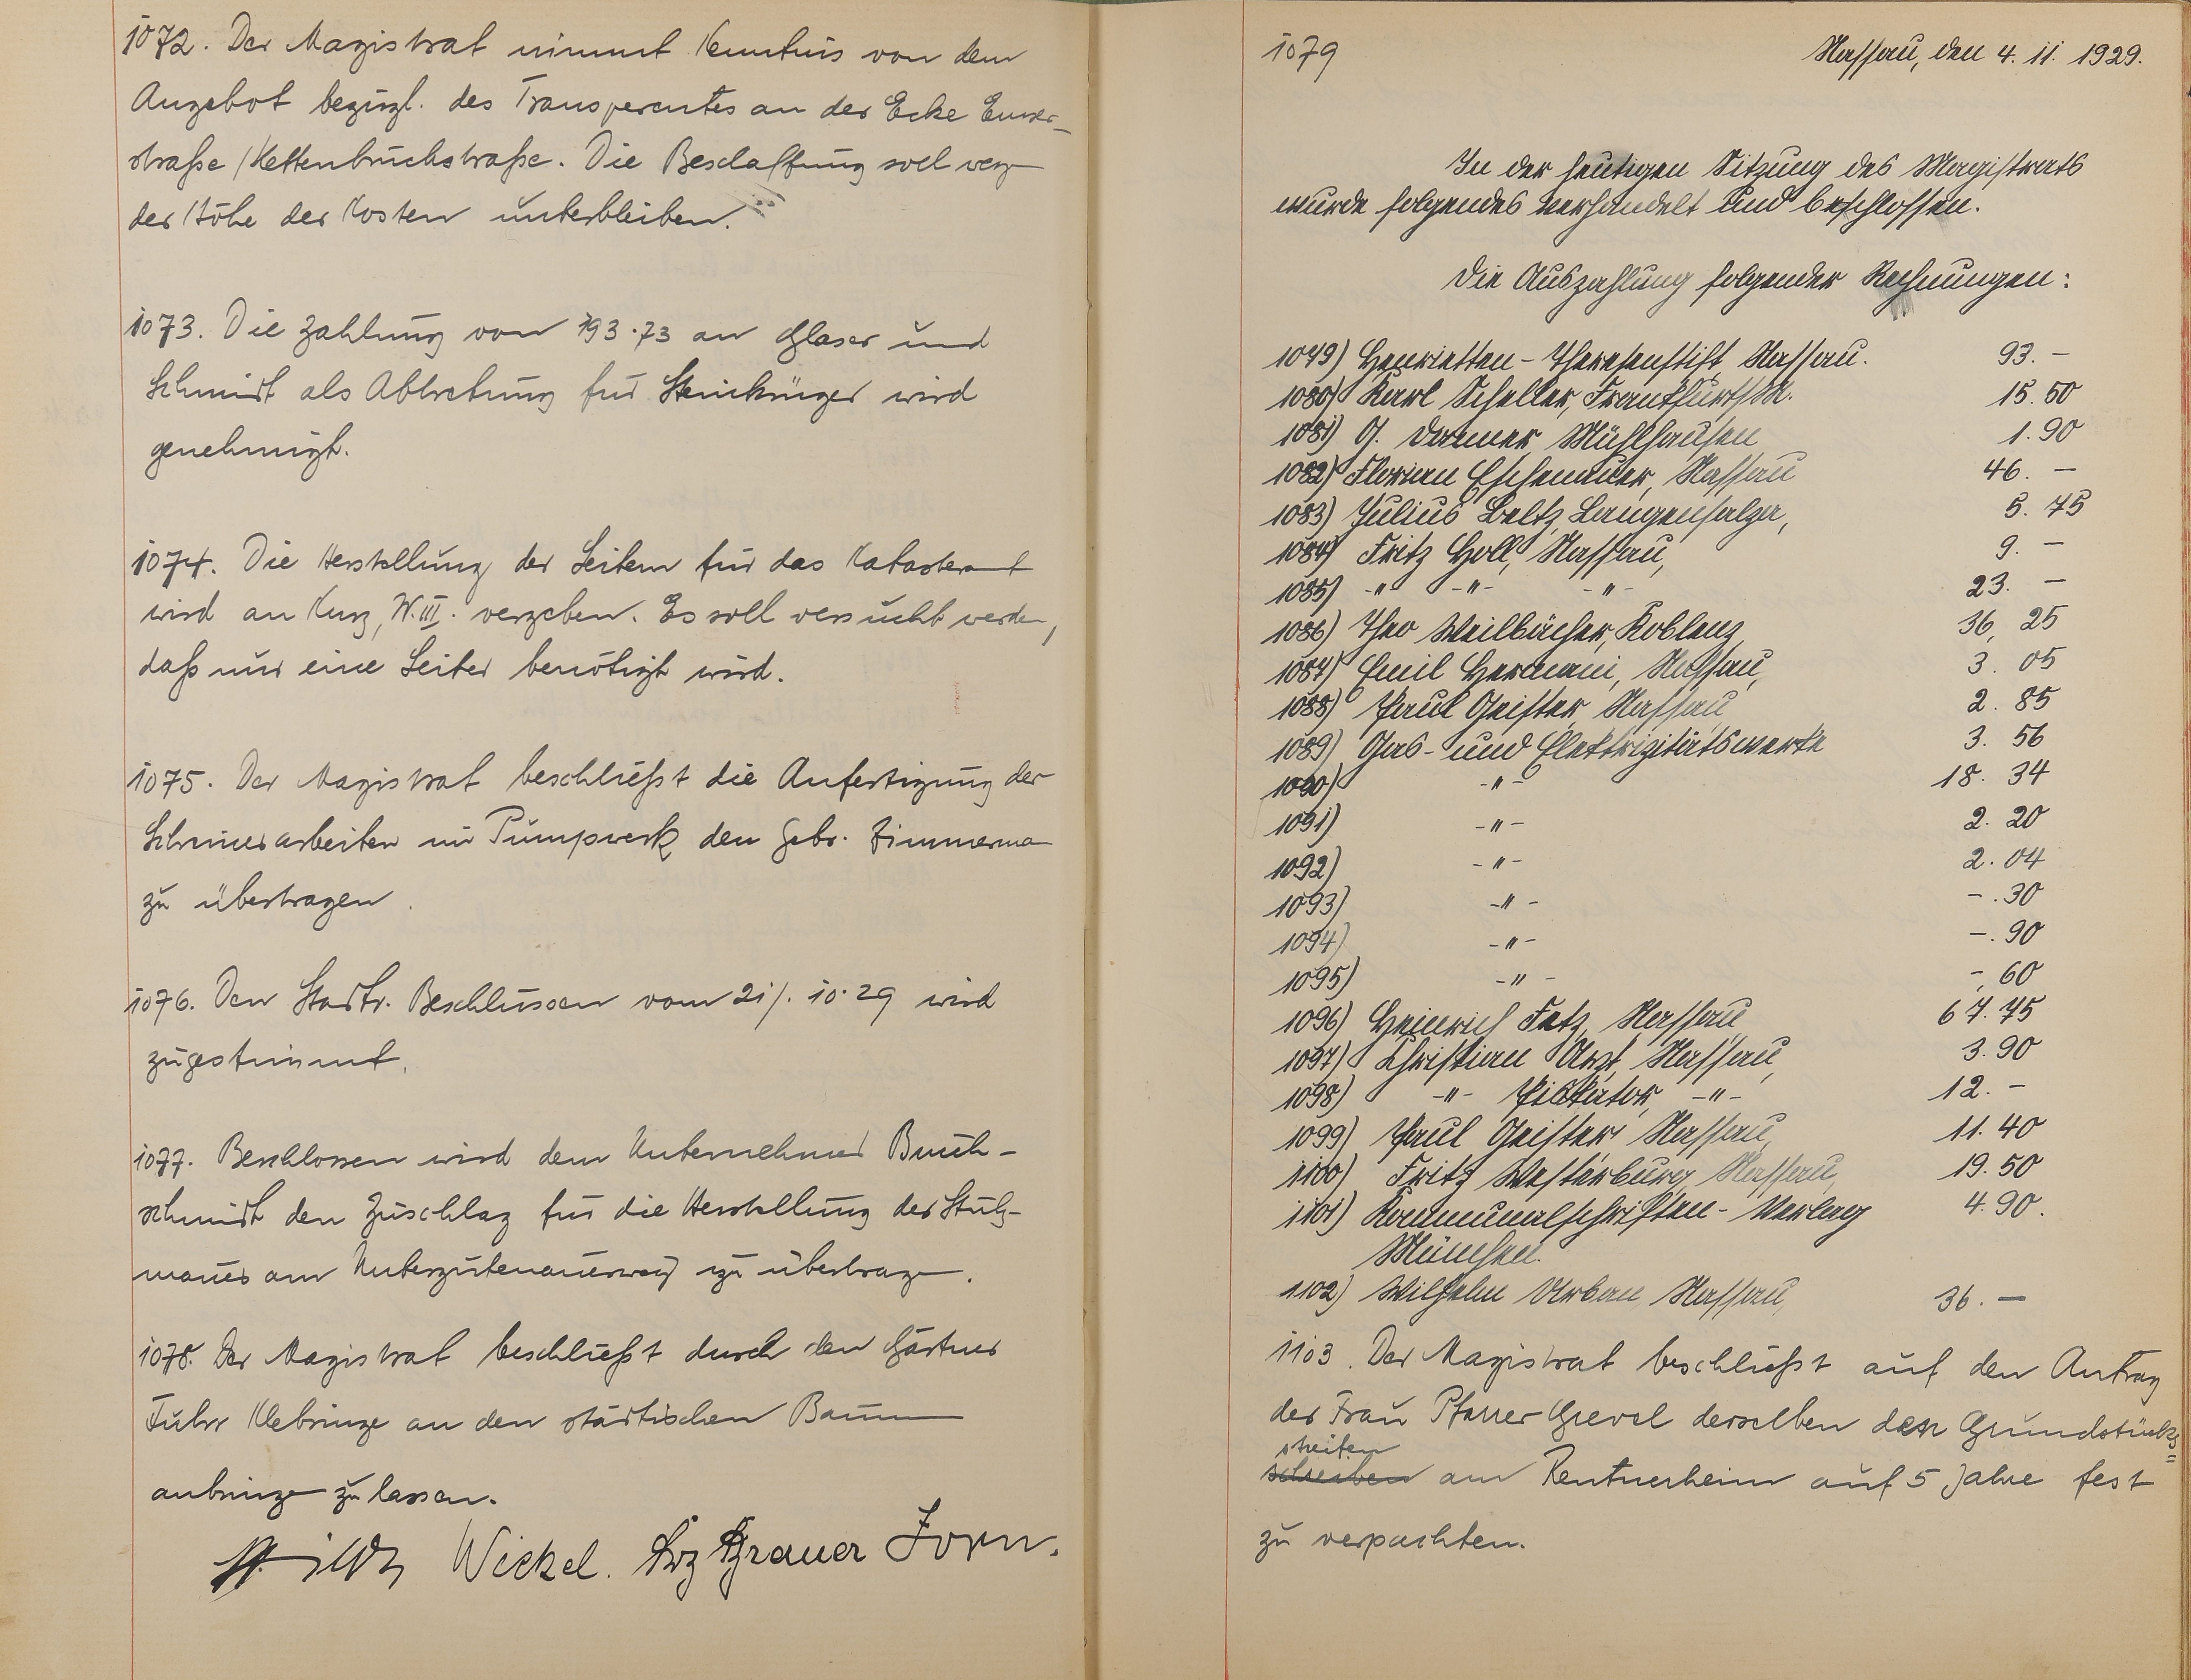 1072. Der Magistrat nimmt Kenntnis von dem
Angebot bezügl. des Transperentes an der Ecke Emser-
straße / Kettenbruchstraße. Die Beschaffung soll weg
der Höhe der Kosten unterbleiben.
1073. Die Zahlung von 193.73 an Glaser und
Schmidt als Abtretung für Steinkrüger wird
genehmigt.
1074. Die Herstellung der Leitern für das Katasteramt
wird an Kurz, W. III. vergeben. Es soll versucht werden,
daß nur eine Leiter benötigt wird.
1075. Der Magistrat beschließt die Anfertigung der
Schreinerarbeiten im Pumpwerk den Gebr. Zimmermann
zu übertragen.
1076. Den Stadtv. Beschlüssen vom 21/. 10. 29 wird
zugestimmt.
1077. Beschlossen wird dem Unternehmer Buch-
schmidt den Zuschlag für die Herstellung der Stütz-
mauer am Untergutenauerweg zu übertragen.
1078. Der Magistrat beschließt durch den Gärtner
Fuhr Klebringe an den städtischen Bäumen
anbringen zu lassen.
Wickel. Grauer Zorn.
1079 Nassau, den 4. 11. 1929.
In der heutigen Sitzung des Magistrats
wurde folgendes verhandelt und beschlossen.
Die Auszahlung folgender Rechnungen:
1079) Henrietten-Theresenstift, Nassau. 93. –
1080) Karl Scheller, Frankfurt/M. 15. 50
1081) G. Danner Mühlhausen 1. 90
1082) Florian Eschenauer, Nassau 46. –
1083) Julius Beltz, Langensalza, 5. 75
1084) Fritz Holl, Nassau, 9. –
1085) -"- -"- -"- 23. –
1086) Theo Weilbächer, Koblenz 36, 25
1087) Emil Hermani, Nassau, 3. 05
1088) Paul Geister, Nassau 2. 85
1089) Gas- und Elektrizitätswerke 3. 56
1090) -"- 18. 34
1091) -"- 2. 20
1092) -"- 2. 04
1093) -"- –. 30
1094) -"- –. 90
1095) -"- –, 60
1096) Heinrich Fetz, Nassau 67. 75
1097) Christian Arzt, Nassau, 3. 90
1098) -"- Piskator, -"- 12. –
1099) Paul Geister, Nassau, 11. 40
1100) Fritz Westerburg, Nassau, 19. 50
1101) Kommunalschriften-Verlag 4. 90.
München.
1102) Wilhelm Urban, Nassau, 36. –
1103. Der Magistrat beschließt auf den Antrag
der Frau Pfarrer Grevel derselben den Grundstücks=
streifen
schreiben am Rentnerheim auf 5 Jahre fest
zu verpachten.